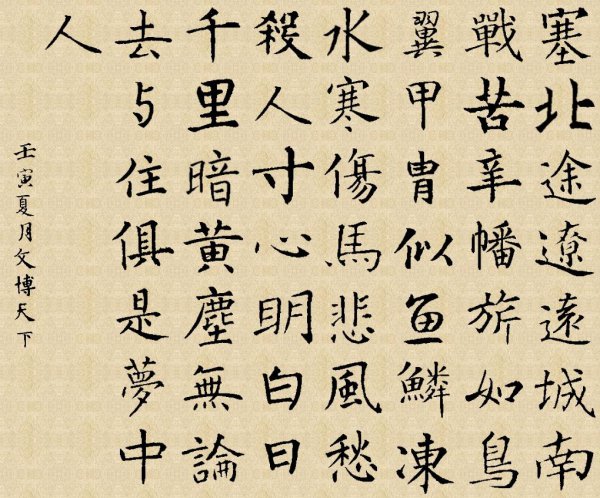 塞北途遼遠城南
戰苦辛幡旂如鳥
翼甲胄似鱼鱗凍
水寒傷馬悲風愁
殺人寸心明白日
千里暗黃塵無論
去与住俱是夢中
人
壬寅夏月文博天下